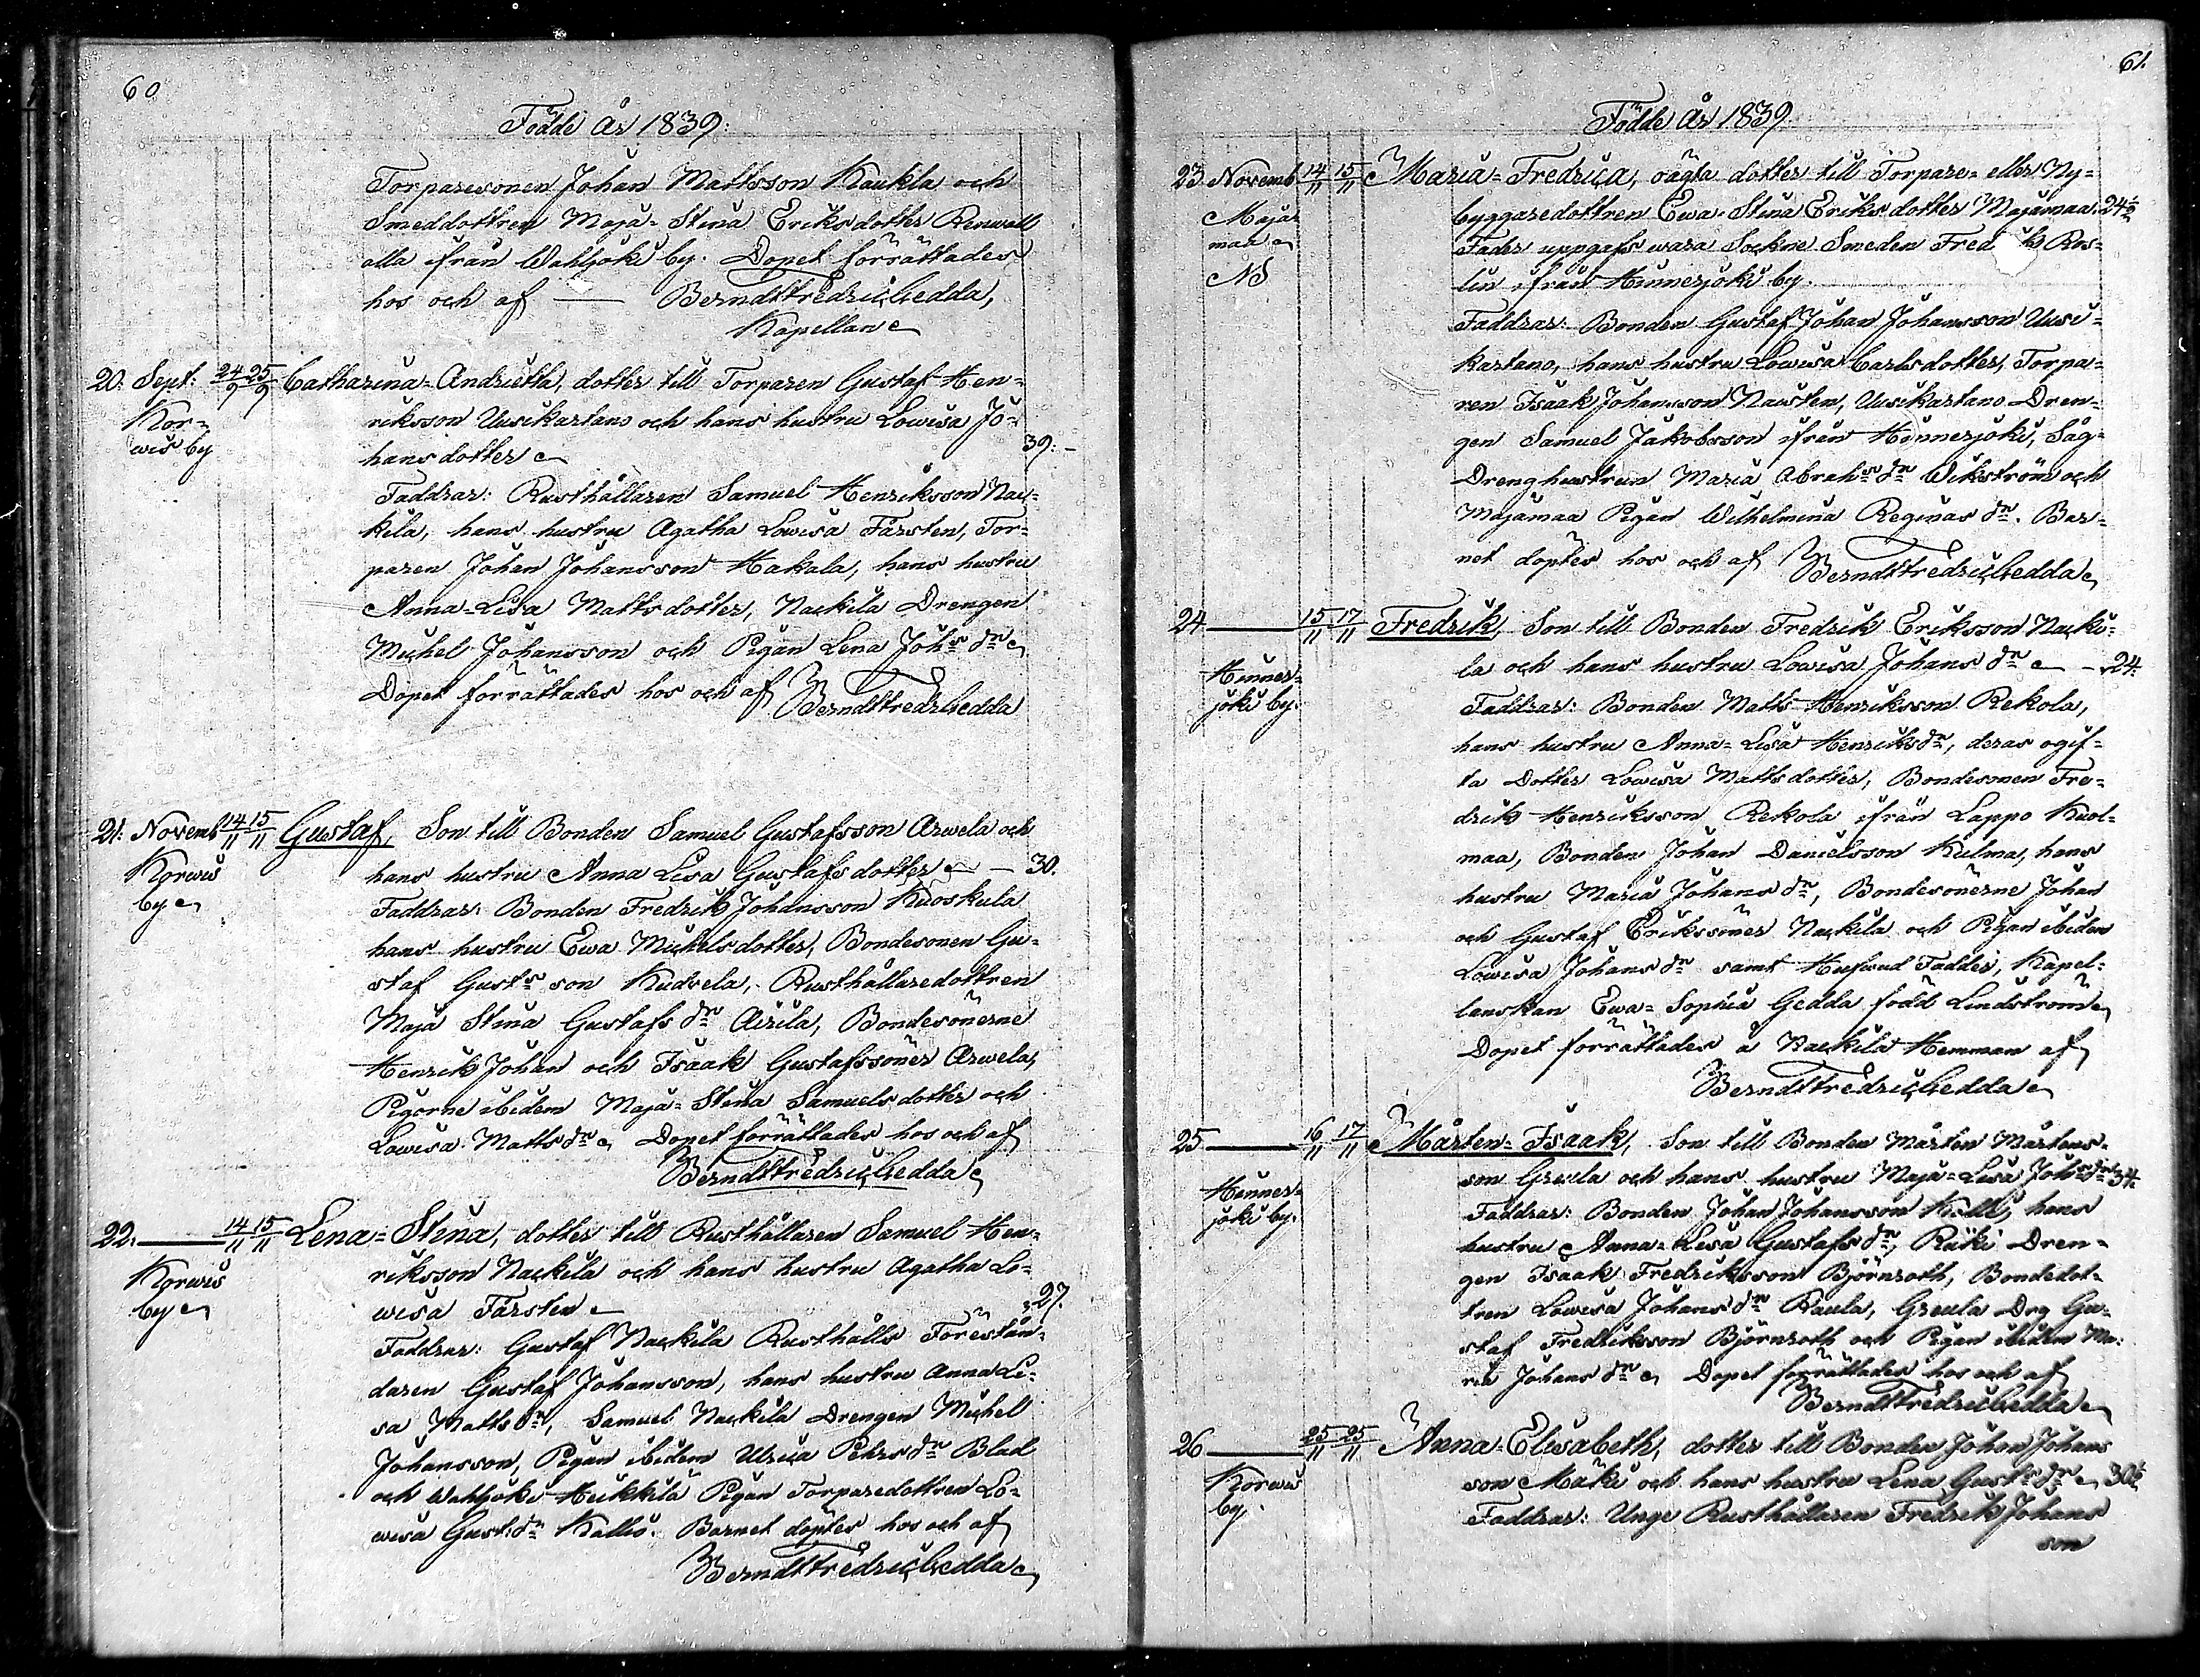 60
Födde År 1839.
Torparesonen Johan Mattsson Kaukla och
Smeddottren Maja-Stina Eriksdotter Renwall
alla ifrån Wahljoki by. Dopet förrättades
hos och af — Berndt Fredric Gedda,
Kapellan
20. Sept. 24/9 25/9 Catharina-Andrietta, dotter till Torparen Gustaf Hen-
Kor- riksson Uusikartano och hans hustru Lowisa Jo-
wis by hansdotter 39.
Faddrar: Rusthållaren Samuel Henriksson Nac-
kila, hans hustru Agatha Lowisa Färsten, Tor-
paren Johan Johansson Hakala, hans hustru
Anna-Lisa Mattsdotter, Nackila Drengen
Michel Johansson och Pigan Lena Johs dr
Dopet förrättades hos och af Berndt Fredr Gedda
21. Novemb 14/11 15/11 Gustaf, Son till Bonden Samuel Gustafsson Arwela och
Korwis hans hustru Anna Lisa Gustafsdotter — 30.
by Faddrar: Bonden Fredrik Johansson Kuoskula
hans hustru Ewa Michelsdotter, Bondesonen Gu-
staf Gusts son Kudvela, Rusthållaredottren
Maja Stina Gustafs dr Äirila, Bondesönerne
Henrik Johan och Isaak Gustafssöner Arwela,
Pigorne ibidem Maja-Stina Samuelsdotter och
Lowisa Matts dr Dopet förrättades hos och af
Berndt Fredric Gedda
22. — 14/11 15/11 Lena-Stina, dotter till Rusthållaren Samuel Hen-
Korwis riksson Nackila och hans hustru Agatha Lo-
by wisa Färsten 27.
Faddrar: Gustaf Nackila Rusthålls Förestån-
daren Gustaf Johansson, hans hustru Anna Li-
sa Matts dr, Samuel Nackila Drengen Michel
Johansson, Pigan ibidem Ulrica Pehrs dr Blad
och Wahljoki Heikkilä Pigan Torparedottren Lo-
wisa Gust. dr Kallio. Barnet döptes hos och af
Berndt Fredric Gedda
61.
Födde År 1839.
23 Novemb 14/11 15/11 Maria-Fredrica, oägta dotter till Torpare- eller Ny-
Maja- byggaredottren Ewa-Stina Eriksdotter Majamaa. 24
maa Fader uppgafs wara Sockne Smeden Fred k Ros-
NS lin ifrån Hinnerjoki by.
Faddrar: Bonden Gustaf Johan Johansson Uusi-
kartano, hans hustru Lowisa Carlsdotter, Torpa-
ren Isaak Johansson Nausten, Uusikartano Dren-
gen Samuel Jakobsson ifrån Hinnerjoki, Såg-
Drenghustrun Maria Abrahs dr Wikström och
Majamaa Pigan Wilhelmina Reginas dr. Bar-
net döptes hos och af Berndt Fredric Gedda
24 — 15/11 17/11 Fredrik, Son till Bonden Fredrik Eriksson Nacki-
Hinner- la och hans hustru Lowisa Johans dr — 24.
joki by. Faddrar: Bonden Matts Henriksson Rekola,
hans hustru Anna-Lisa Henriks dr, deras ogif-
ta Dotter Lowisa Mattsdotter, Bondesonen Fre-
drik Henriksson Rekola ifrån Lappo Kuol-
maa, Bonden Johan Danielsson Kulma, hans
hustru Maria Johans dr, Bondesönerne Johan
och Gustaf Erikssöner Nackila och Pigan ibidem
Lowisa Johans dr samt Hufwud Fadder, Kapel-
lanskan Ewa-Sophia Gedda född Lindström
Dopet förrättades å Nackila Hemman af
Berndt Fredric Gedda
25 — 16/11 17/11 Mårten-Isaak, Son till Bonden Mårten Mårtens-
Hinner- son Greula och hans hustru Maja-Lisa Johs dr 34
joki by. Faddrar: Bonden Johan Johansson Kolli, hans
hustru Anna-Lisa Gustafs dr, Räki Dren-
gen Isaak Fredriksson Björnroth, Bondedot-
tren Lowisa Johans dr Kaula, Greula Drg Gu-
staf Fredriksson Björnroth och Pigan ibidem Ma-
ria Johans dr Dopet förrättades hos och af
Berndt Fredric Gedda
26 — 25/11 25/11 Anna-Elisabeth, dotter till Bonden Johan Johans
Korwis son Mäki och hans hustru Lena Gusts dr 30
by. Faddrar: Unge Rusthållaren Fredrik Johans
son